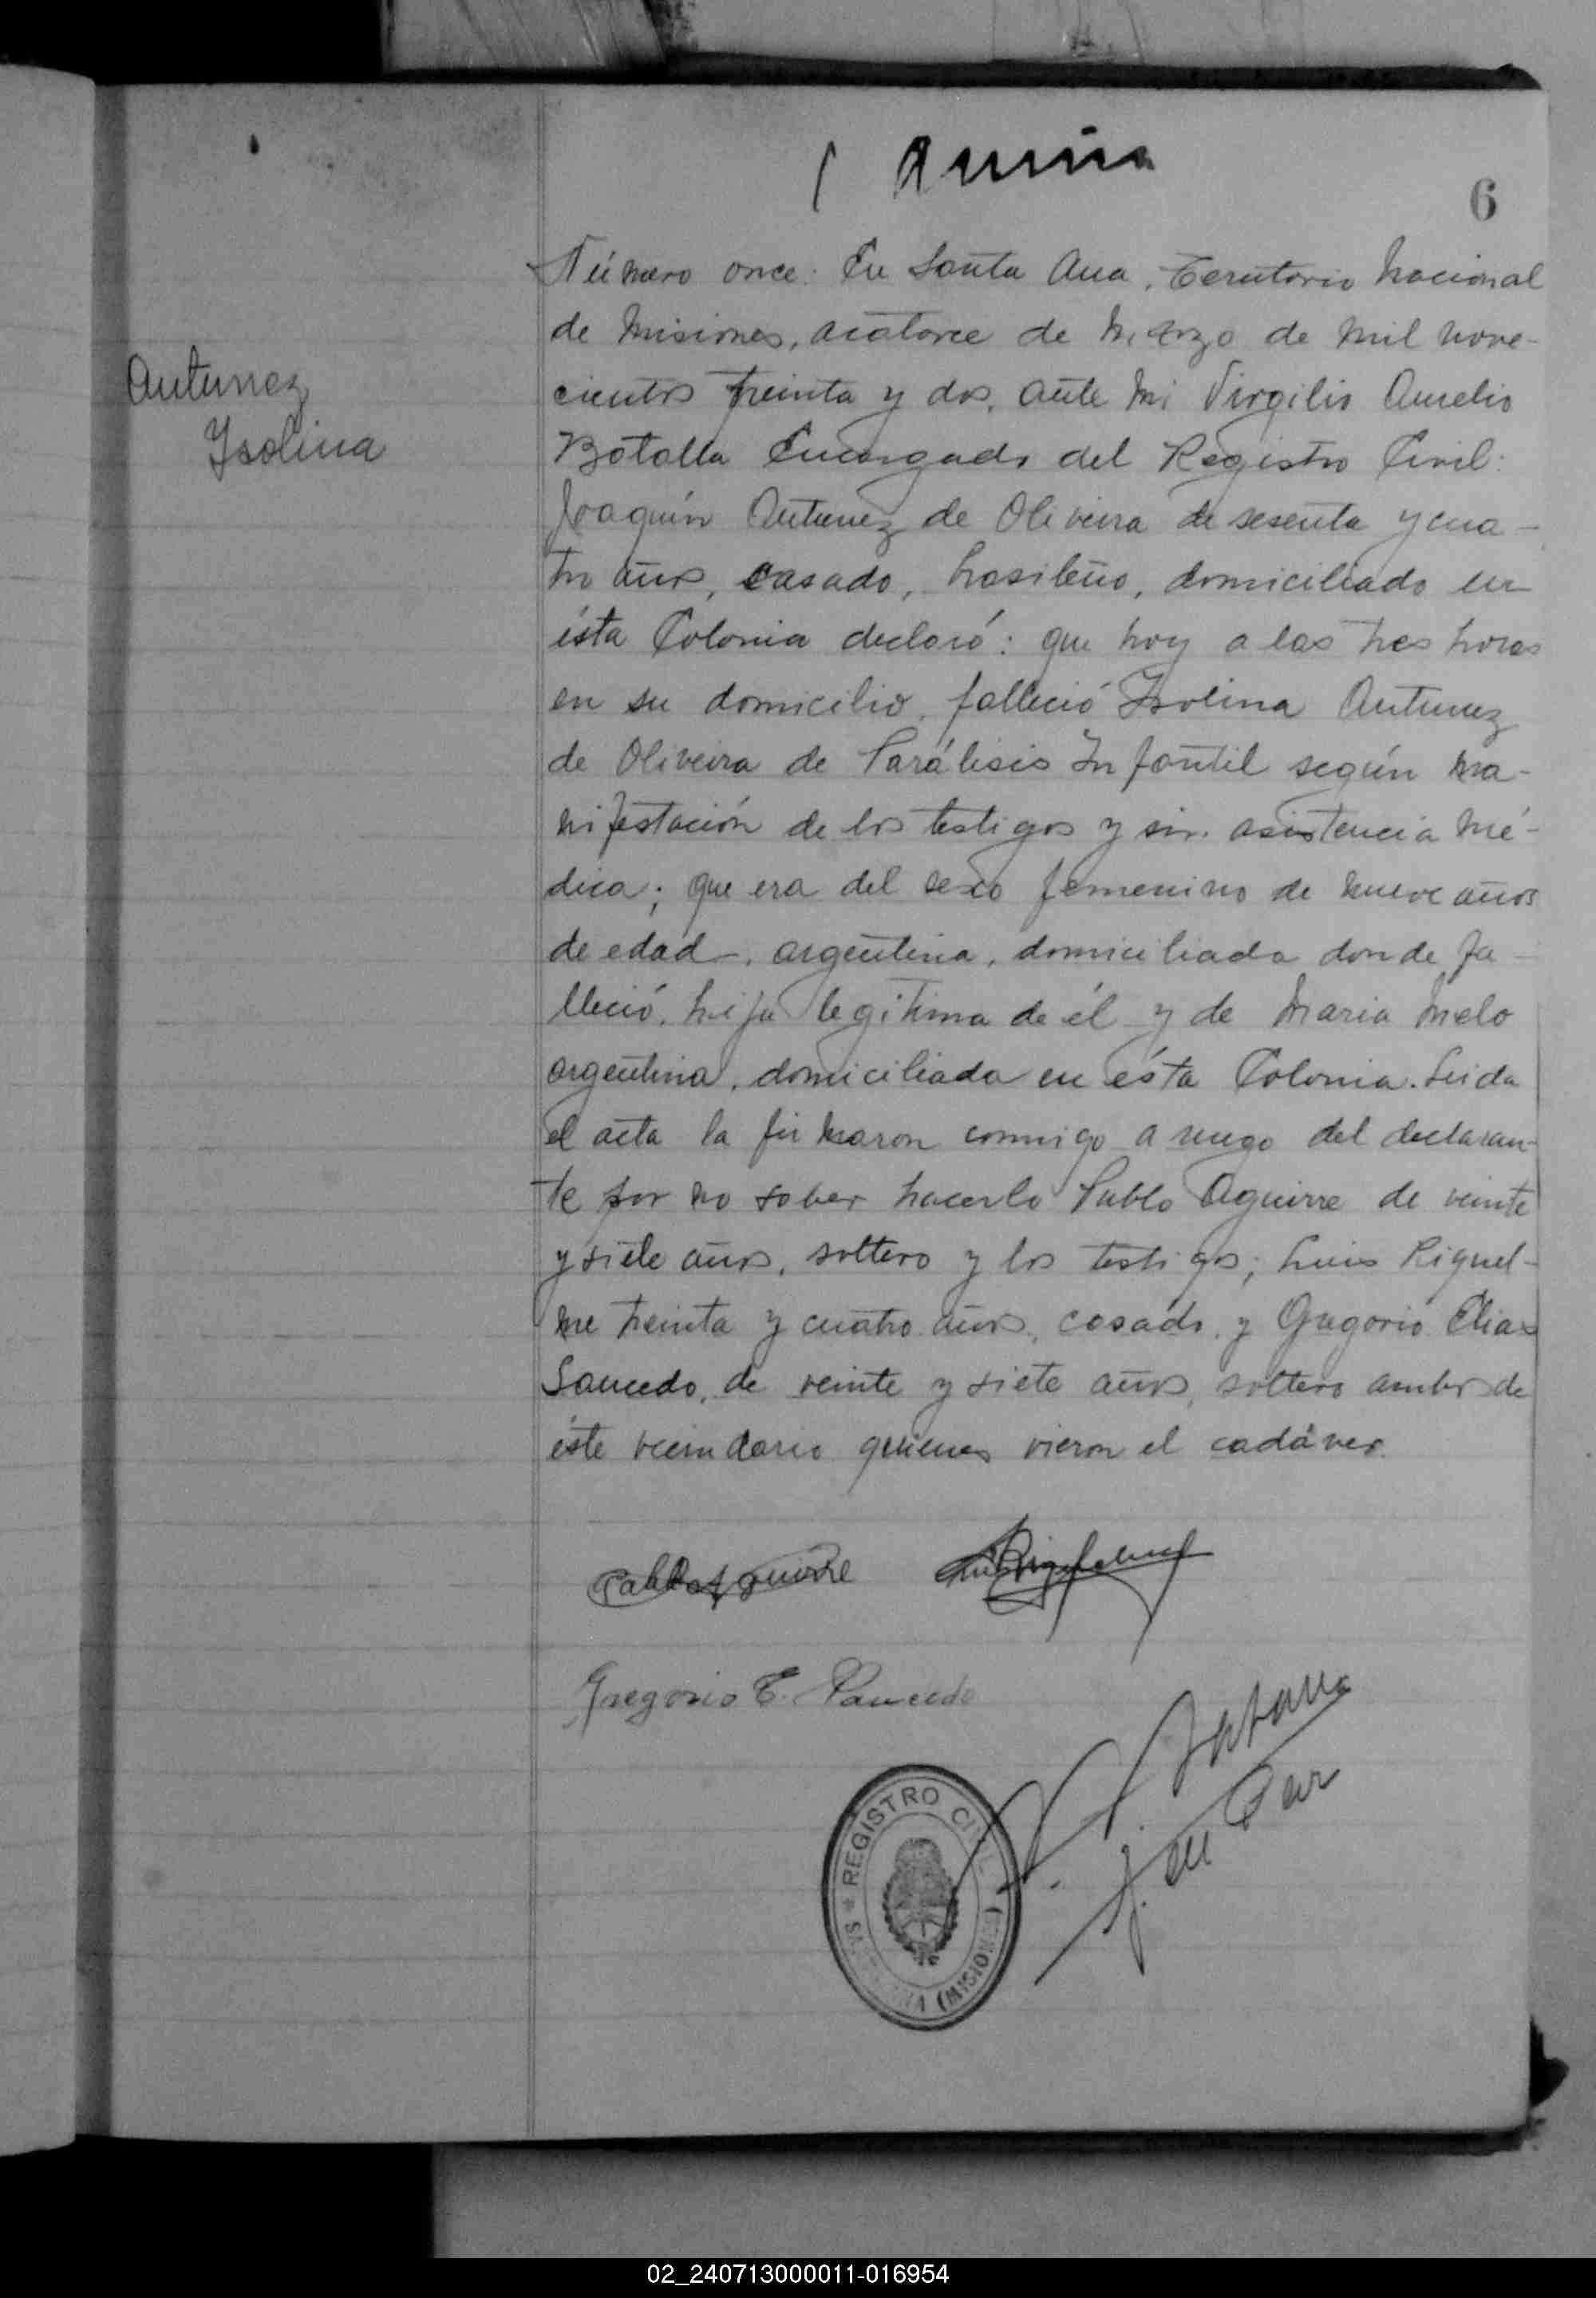 6
Número once: En Santa Ana, Territorio Nacional
de Misiones, a catorce de Marzo de mil nove-
cientos treinta y dos, ante mi Virgilio Aurelio
Botalla Encargado del Registro Civil:
Antunez
Isolina
Joaquín Antunez de Oliveira de sesenta y cua-
tro años, casado, brasileño, domiciliado en
ésta Colonia declaró: que hoy a las tres horas
en su domicilio, falleció Isolina Antunez
de Oliveira de Parálisis Infantil según ma-
nifestación de los testigos y sin asistencia mé-
dica; que era del sexo femenino de nueve años
de edad, argentina, domiciliada donde fa-
lleció, hija legítima de él y de Maria Melo
argentina, domiciliada en ésta Colonia. Leida
el acta la firmaron conmigo a ruego del declaran-
te por no saber hacerlo Pablo Aguirre de veinte
y siete años, soltero y los testigos; Luis Riquel-
me treinta y cuatro años, casado, y Gregorio Elias
Saucedo, de veinte y siete años, soltero ambos de
éste vecindario quienes vieron el cadáver.
Pablo Aguirre
Gregorio E. Saucedo
REGISTRO CIVIL
(MISIONES)
02_240713000011-016954